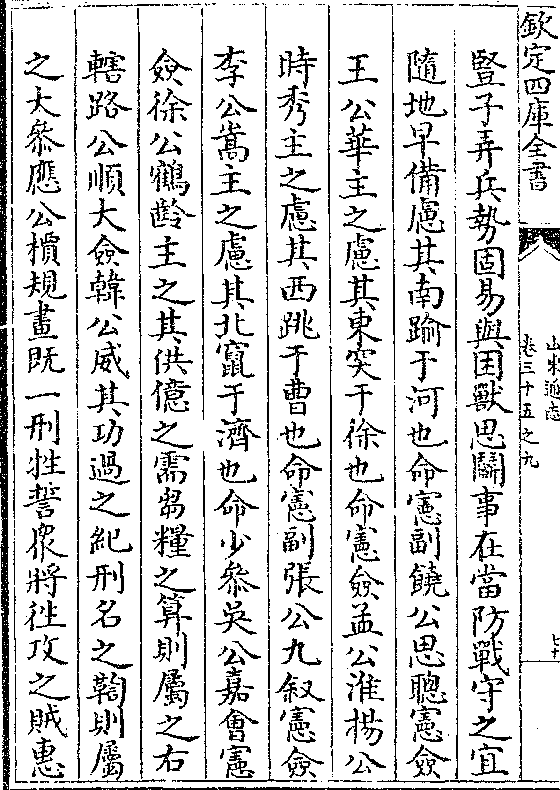 欽定四庫全書
山東通志
卷三十五之九
七十
豎子弄兵勢固易與困獸思鬬事在當防戰守之宜
隨地早備慮其南踰于河也命憲副饒公思聰憲僉
王公華主之慮其東突于徐也命憲僉孟公淮楊公
時秀主之慮其西跳于曹也命憲副張公九叙憲僉
李公嵩主之慮其北竄于濟也命少叅吳公嘉會憲
僉徐公鶴齡主之其供億之需芻糧之算則屬之右
轄路公順大僉韓公威其功過之紀刑名之鞫則屬
之大叅應公檟規畫既一刑牲誓衆將徃攻之賊惠